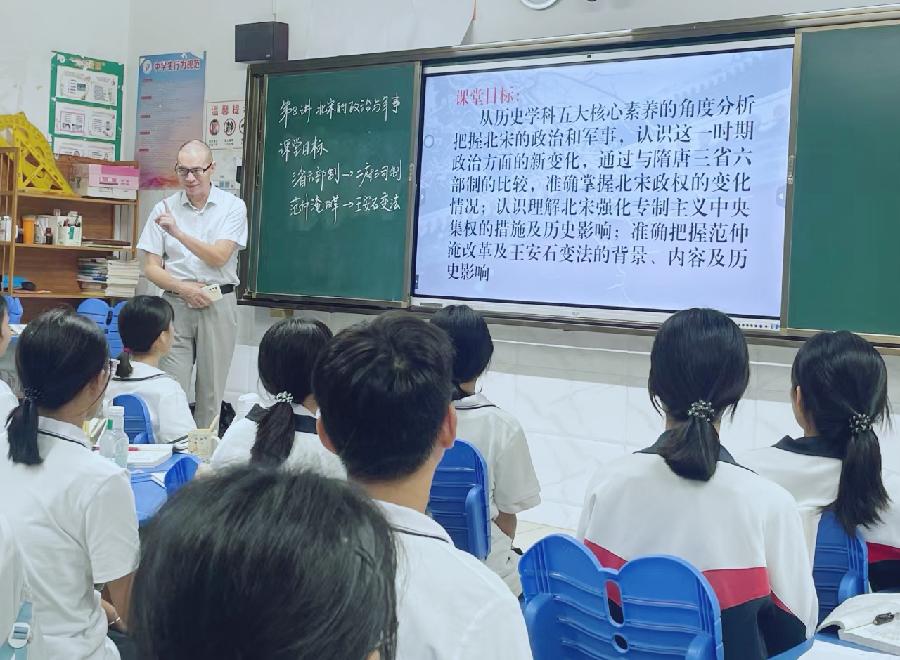 中学生行为规范
温馨提
第8讲 北宋的政治与军事
课堂目标
三省六部制→二府三司制
范仲淹改革→王安石变法
课堂目标：
从历史学科五大核心素养的角度分析
把握北宋的政治和军事，认识这一时期
政治方面的新变化，通过与隋唐三省六
部制的比较，准确掌握北宋政权的变化
情况；认识理解北宋强化专制主义中央
集权的措施及历史影响；准确把握范仲
淹改革及王安石变法的背景、内容及历
史影响